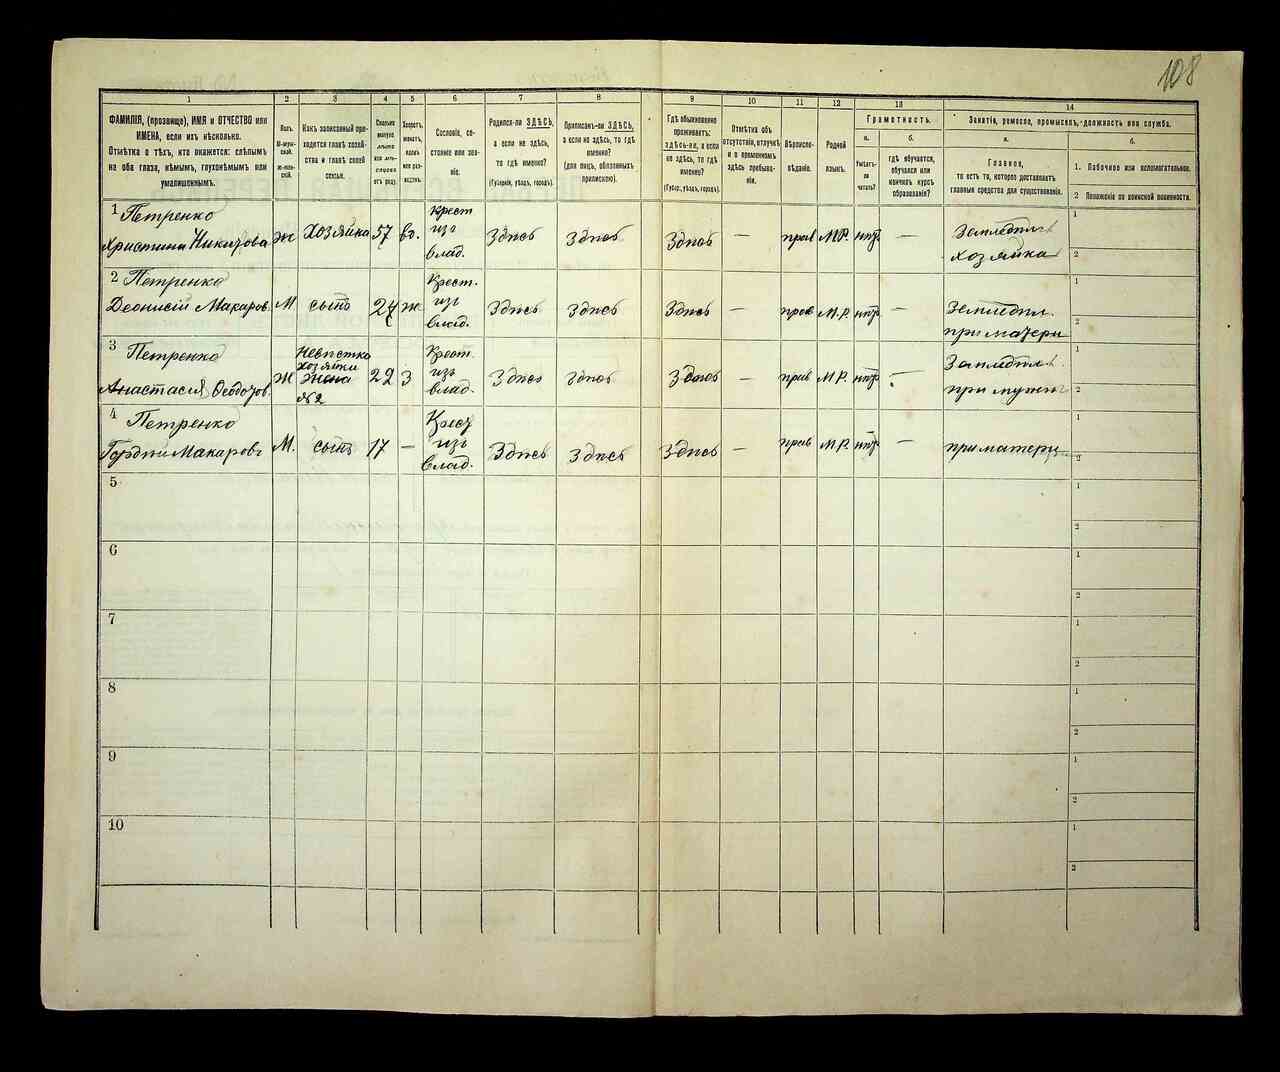 108
1
2
3
4
5
6
7
8
9
10
11
12
13
14
ФАМИЛІЯ, (прозвище), ИМЯ и ОТЧЕСТВО или
ИМЕНА, если ихъ нѣсколько.
Отмѣтка о тѣхъ, кто окажется: слѣпымъ
на оба глаза, нѣмымъ, глухонѣмымъ или
умалишеннымъ.
Полъ.
М-муж-
ской.
Ж-жен-
ской.
Какъ записанный при-
ходится главѣ хозяй-
ства и главѣ своей
семьи.
Сколько
минуло
лѣтъ
или мѣ-
сяцевъ
отъ роду.
Холостъ,
женатъ,
вдовъ
или раз-
веденъ.
Сословіе, со-
стояніе или зва-
ніе.
Родился-ли ЗДѢСЬ,
а если не здѣсь,
то гдѣ именно?
(Губернія, уѣздъ, городъ).
Приписанъ-ли ЗДѢСЬ,
а если не здѣсь, то гдѣ
именно?
(для лицъ, обязанныхъ
припискою).
Гдѣ обыкновенно
проживаетъ:
здѣсь-ли, а если
не здѣсь, то гдѣ
именно?
(Губер., уѣздъ, городъ).
Отмѣтка объ
отсутствіи, отлучкѣ
и о временномъ
здѣсь пребыва-
ніи.
Вѣроиспо-
вѣданіе.
Родной
языкъ.
Грамотность.
а.
б.
Умѣетъ-
ли
читать?
гдѣ обучается,
обучался или
кончилъ курсъ
образованія?
Занятіе, ремесло, промыселъ, должность или служба.
а.
б.
Главное,
то есть то, которое доставляетъ
главныя средства для существованія.
1. Побочное или вспомогательное.
2 Положеніе по воинской повинности.
1 Петренко
Христина Никитова ж Хозяйка 57 вд. Крест из влад. Здѣсь Здѣсь Здѣсь — прав М.Р. нтр — Земледѣл хозяйка
1
2
2 Петренко
Деонисій Макаров. М сынъ 24 ж Крест. из влад. Здѣсь Здѣсь Здѣсь — прав М.Р. нтр — Земледѣл. при матери
1
2
3 Петренко
Анастасія Ѳеодотов. ж Невѣстка хозяйки жена №2 22 З Крест. из влад. Здѣсь Здѣсь Здѣсь — прав М.Р. нтр — Земледѣл. при мужѣ
1
2
4 Петренко
Гордій Макаровъ М. сынъ 17 — Крест из влад. Здѣсь Здѣсь Здѣсь — прав М.Р. нтр — при матери
1
2
5
1
2
6
1
2
7
1
2
8
1
2
9
1
2
10
1
2